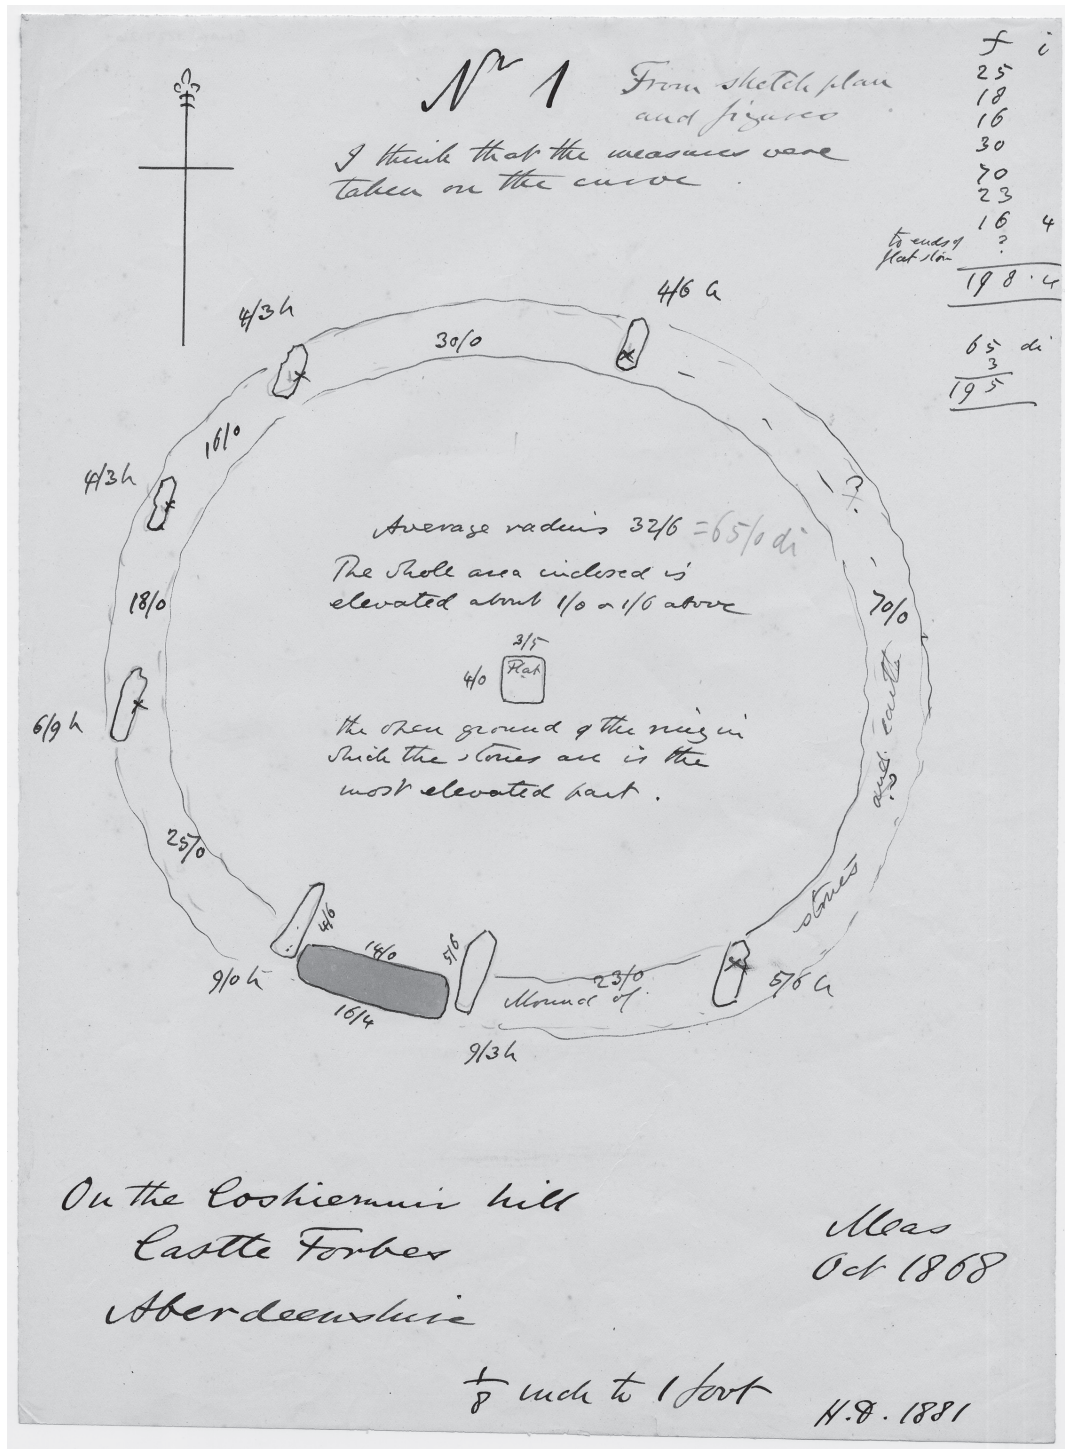 Nr 1
From sketch plan
and figures
I think that the measures were
taken on the curve
f i
25
18
16
30
70
23
16 4
to ends of
flat stone
?
198.4
65 di
3
195
4/3 h
4/6 h
30/0
16/0
4/3 h
Average radius 32/6 = 65/0 di
The whole area inclosed is
elevated about 1/0 or 1/6 above
18/0
70/0
3/5
4/0
Flat
6/9 h
the open ground & the ring in
which the stones are is the
most elevated part.
25/0
4/6
14/0
5/6
9/0 h
16/4
23/0
5/6 h
Mound of
stones
and earth
?
9/3 h
On the Coshiemuir hill
Castle Forbes
Aberdeenshire
Meas
Oct 1868
1/8 inch to 1 foot
H.D. 1881